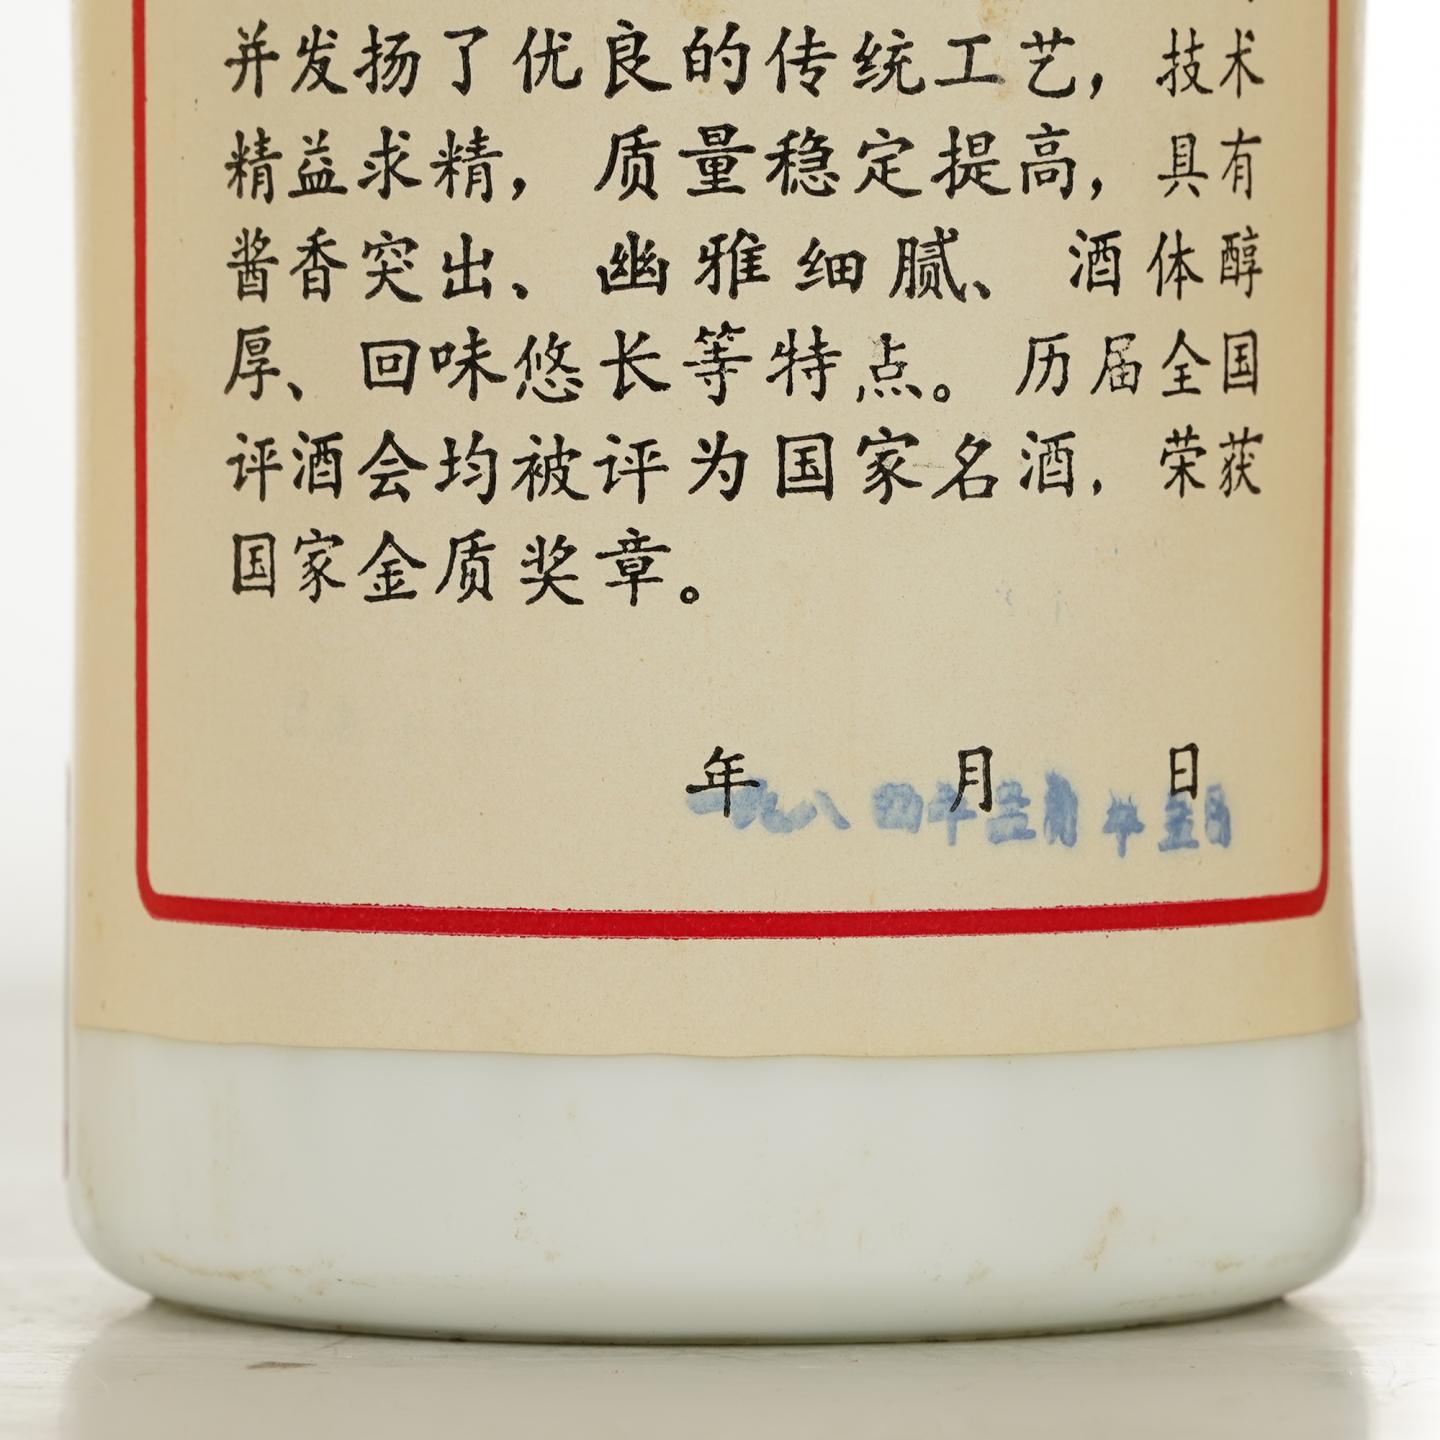 并发扬了优良的传统工艺，技术
精益求精，质量稳定提高，具有
酱香突出、幽雅细腻、酒体醇
厚、回味悠长等特点。历届全国
评酒会均被评为国家名酒，荣获
国家金质奖章。
年 月 日
一九八四年